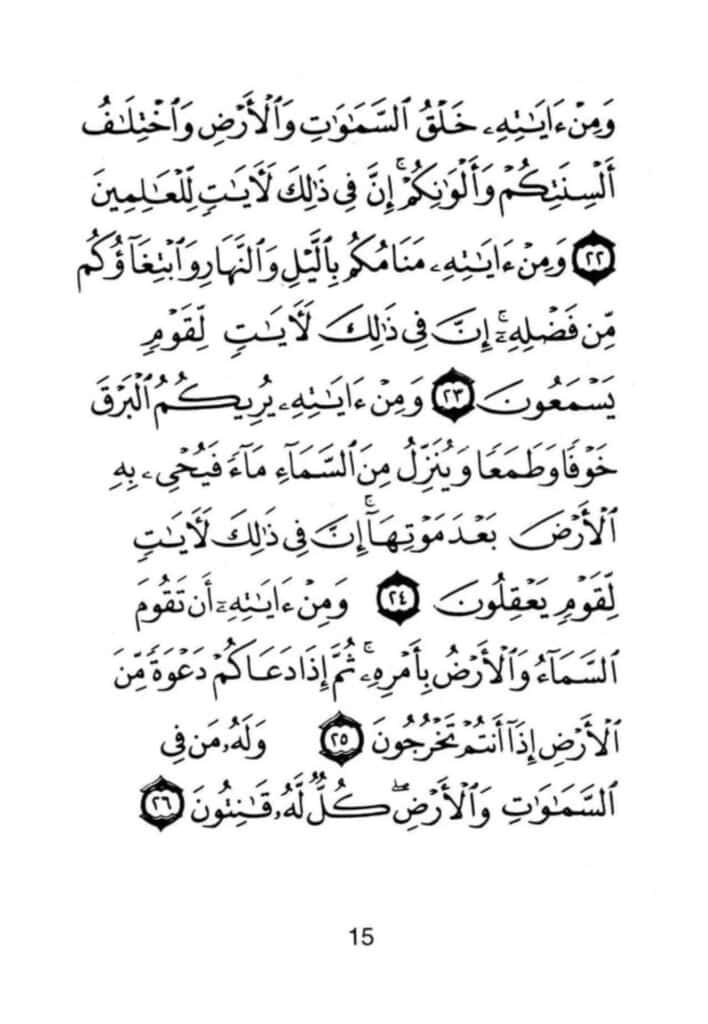 وَمِنْ ءَايَٰتِهِۦ خَلْقُ ٱلسَّمَٰوَٰتِ وَٱلْأَرْضِ وَٱخْتِلَٰفُ
أَلْسِنَتِكُمْ وَأَلْوَٰنِكُمْ ۚ إِنَّ فِى ذَٰلِكَ لَءَايَٰتٍ لِّلْعَٰلِمِينَ
٢٢ وَمِنْ ءَايَٰتِهِۦ مَنَامُكُم بِٱلَّيْلِ وَٱلنَّهَارِ وَٱبْتِغَآؤُكُم
مِّن فَضْلِهِۦٓ ۚ إِنَّ فِى ذَٰلِكَ لَءَايَٰتٍ لِّقَوْمٍ
يَسْمَعُونَ ٢٣ وَمِنْ ءَايَٰتِهِۦ يُرِيكُمُ ٱلْبَرْقَ
خَوْفًا وَطَمَعًا وَيُنَزِّلُ مِنَ ٱلسَّمَآءِ مَآءً فَيُحْىِۦ بِهِ
ٱلْأَرْضَ بَعْدَ مَوْتِهَآ ۚ إِنَّ فِى ذَٰلِكَ لَءَايَٰتٍ
لِّقَوْمٍ يَعْقِلُونَ ٢٤ وَمِنْ ءَايَٰتِهِۦٓ أَن تَقُومَ
ٱلسَّمَآءُ وَٱلْأَرْضُ بِأَمْرِهِۦ ۚ ثُمَّ إِذَا دَعَاكُمْ دَعْوَةً مِّنَ
ٱلْأَرْضِ إِذَآ أَنتُمْ تَخْرُجُونَ ٢٥ وَلَهُۥ مَن فِى
ٱلسَّمَٰوَٰتِ وَٱلْأَرْضِ ۖ كُلٌّ لَّهُۥ قَٰنِتُونَ ٢٦
15